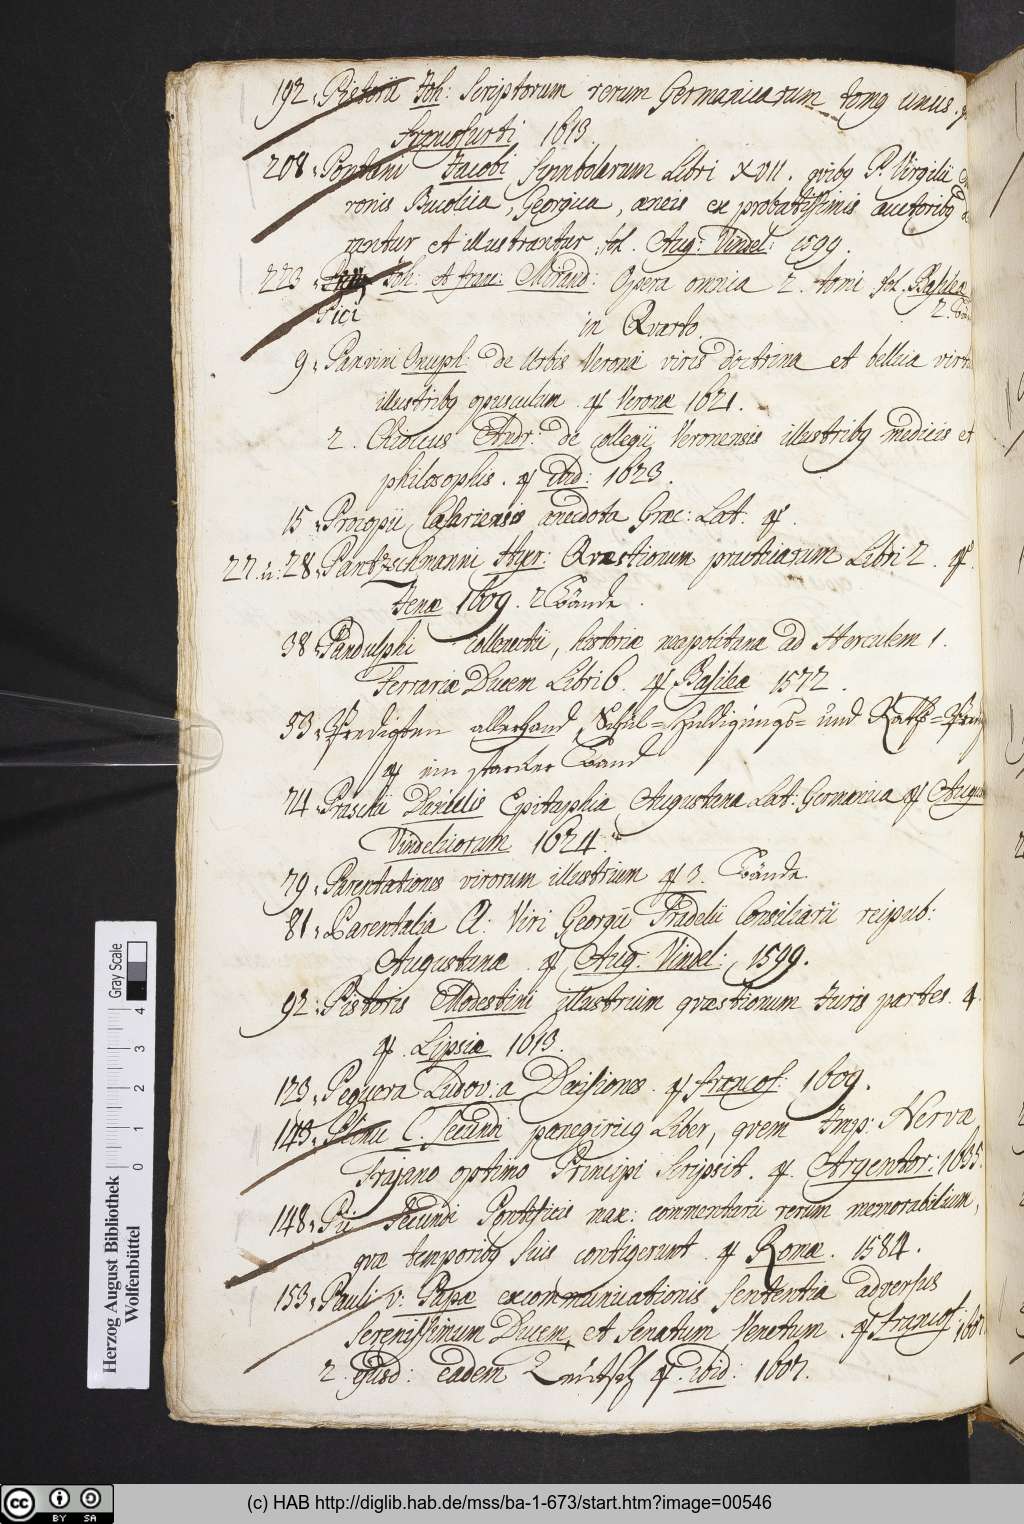 192. Pistorii Joh: Scriptorum rerum Germanicarum tomq unus.
Francofurti 1613.
208. Pontani Jacobi Symbolarum Libri XVII. qvibq P. Virgilii
ronis Bucolica, Georgica, æneis ex probatissimis auctoribq
rantur et illustrantur, fol. Aug: Vindel: 1599.
223 Joh: et franc: Mirand: Opera omnia 2. tomi fol. Basileæ
Pici 2. Bände
in Qvarto.
9. Panvini Onuph: de Urbis Veronæ viris doctrina et bellica virtu
illustribq opusculum. 4º Veronæ 1621.
2. Chioccus Andr: de collegii Veronensis illustribq medicis et
philosophis. 4º ibid: 1623.
15. Procopii Cæsariensis anecdota Græc: Lat. 4º.
27. u: 28. Pantzschmanni Hyer: Qvæstionum practicarum Libri 2. 4º.
Jenæ 1609. 2 Bände.
38. Pandulphi Collenutii, historiæ neapolitanæ ad Herculem 1.
Ferrariæ Ducem Libri 6. 4º Basileæ 1572.
53. Predigten allerhand, Schul= Huldigungs= und Rahts=
4º ein starcker Band
74. Praschii Danielis Epitaphia Augustana Lat: Germanica 4º Augus
Vindelicorum 1624.
79. Parentationes virorum illustrium 4º 3. Bände.
81. Parentalia Cl: Viri Georgii Tradelii Consiliarii reipub:
Augustanæ. 4º Aug: Vindel: 1599.
92. Pistoris Modestini illustrium qvæstionum Juris partes. 4.
4º. Lipsiæ 1613.
123. Pegvera Ludov: a Decisiones. 4º francof: 1609.
143. Plinii C. Secundi panegiricq Liber, qvem Imp: Nervæ
Trajano optimo Principi scripsit. 4º. Argentor: 1635.
148. Pii Secundi Pontificis max: commentarii rerum memorabilium,
qvæ temporibq suis contigerunt. 4º Romæ. 1584.
153. Pauli v: Papæ excommunicationis sententia adversus
Serenissimum Ducem et Senatum Venetum. 4º francof: 1607.
2. Ejusd: eadem Teütsch 4º. ibid: 1607.
Herzog August Bibliothek
Wolfenbüttel
Gray Scale
0 1 2 3 4
cc BY SA
(c) HAB http://diglib.hab.de/mss/ba-1-673/start.htm?image=00546